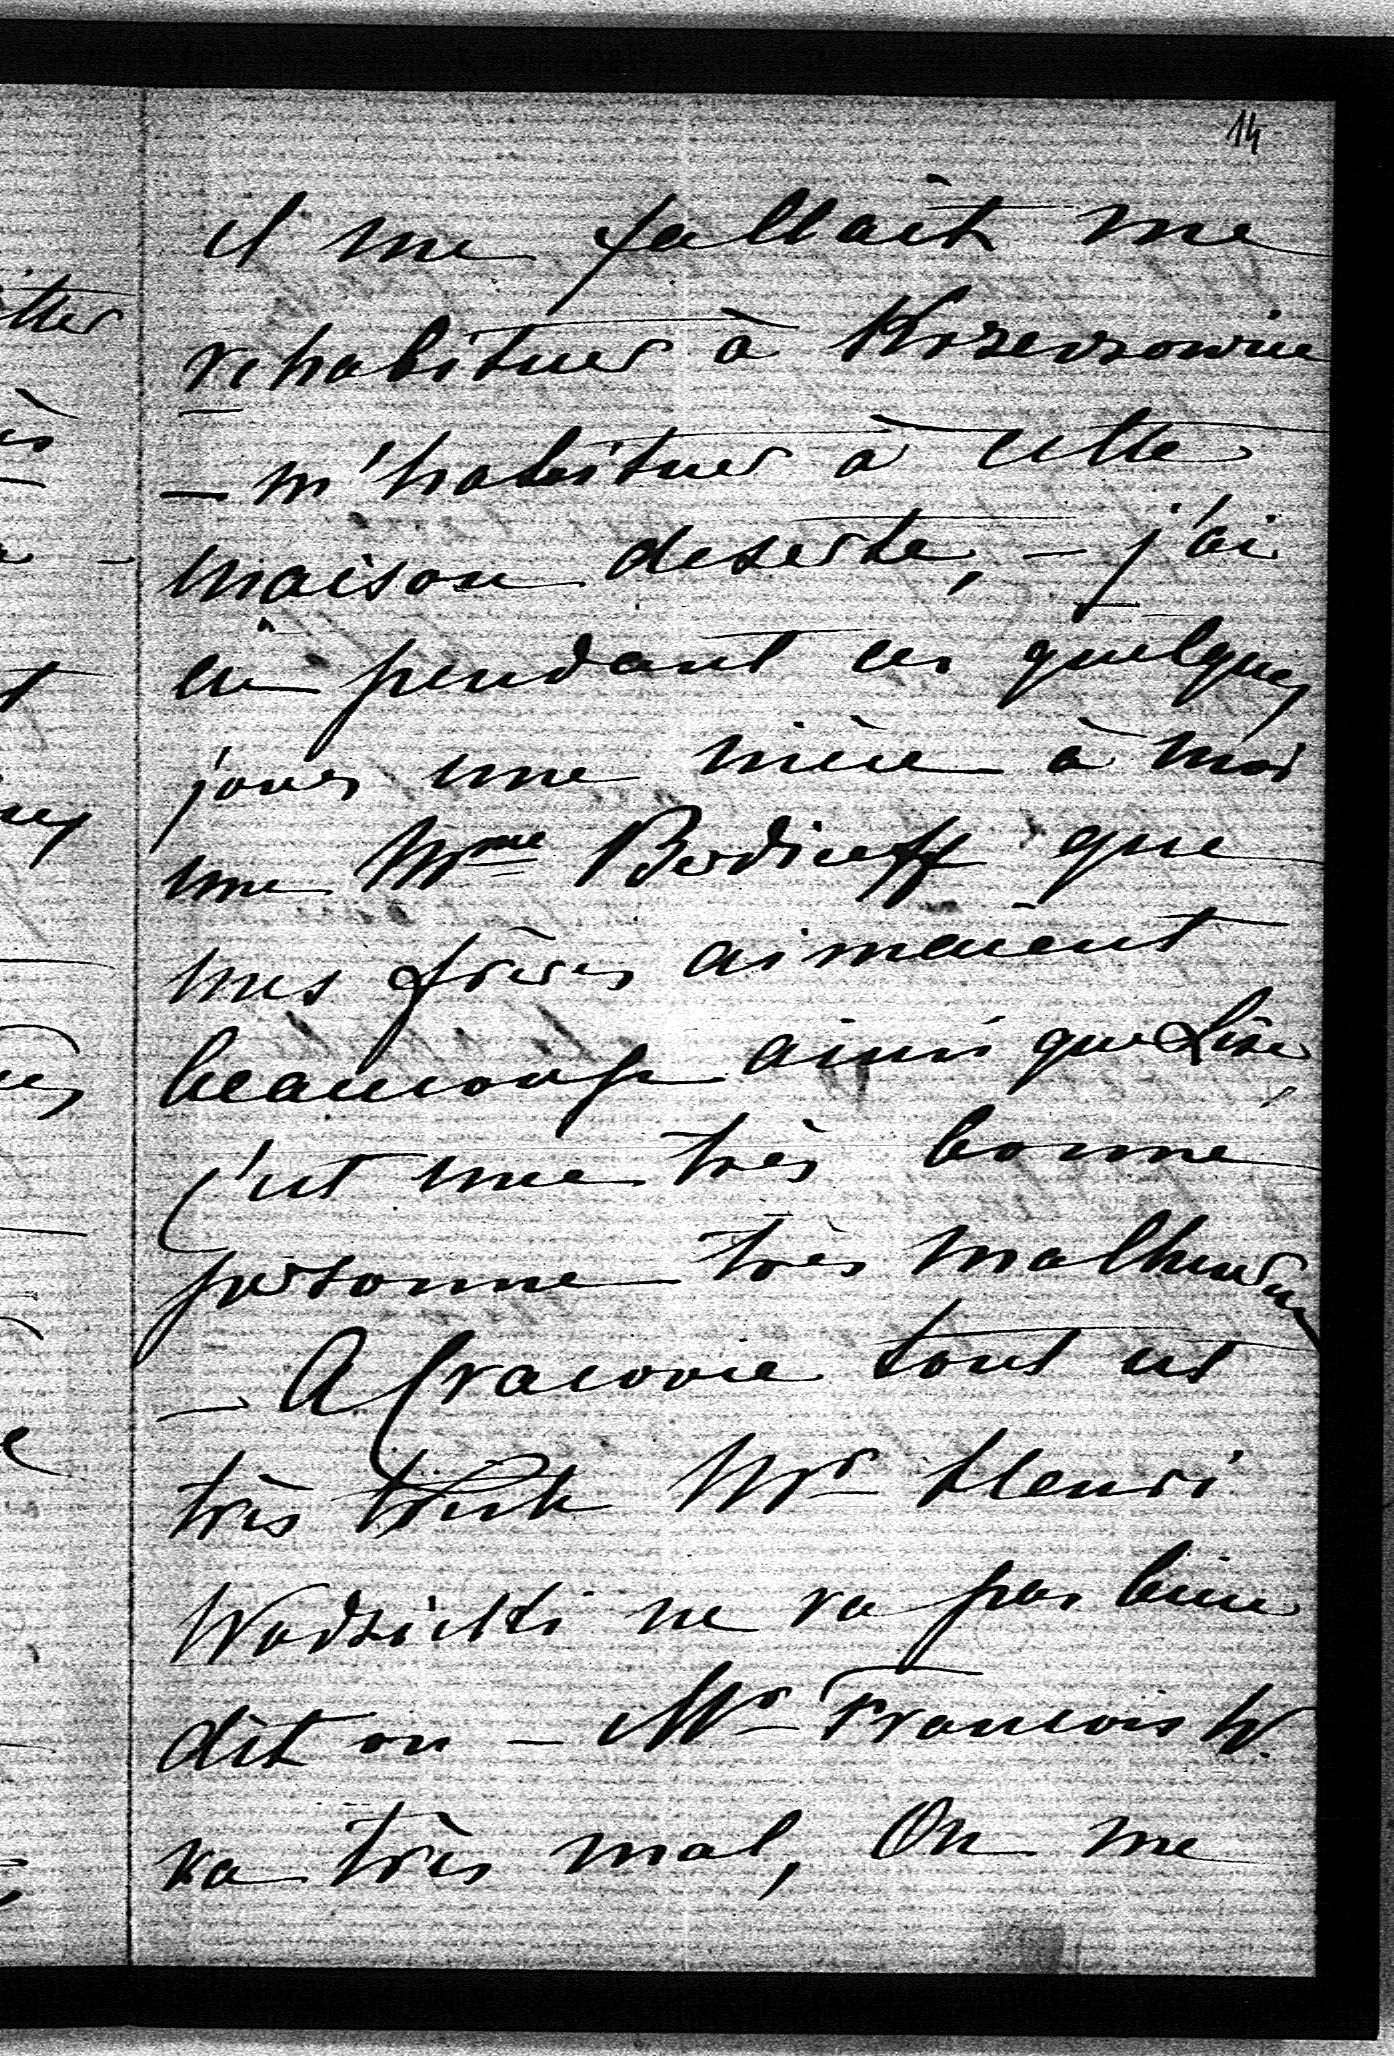 14
il me fallait me
rehabituer à Krzeszowice
— m'habituer à cette
maison deserte, — j'ai
eû pendant ces quelques
jours une nièce à moi
une Mme que
mes frères aimaient
beaucoup ainsi que Lise,
c'est une très bonne
personne très malheureuse
— A Cracovie tout est
très triste Mr Henri
Wodzicki ne va pas bien
dit on — Mr Francois W.
va très mal, On me